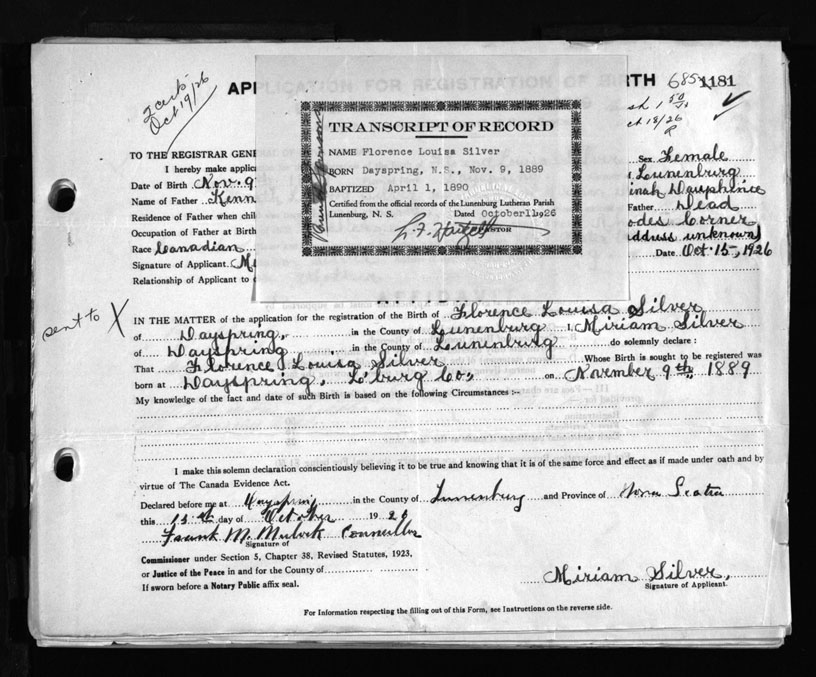 APPLICATION FOR REGISTRATION OF BIRTH 685 1181
Oct 19/26
ch 18/26
TRANSCRIPT OF RECORD
NAME Florence Louisa Silver
BORN Dayspring, N.S., Nov. 9, 1889
BAPTIZED April 1, 1890
Certified from the official records of the Lunenburg Lutheran Parish
Lunenburg, N. S. Dated October 11, 1926
PASTOR
TO THE REGISTRAR GENE
I hereby make applic
Sex Female
Date of Birth Nov. 9
Lunenburg
Name of Father Kenn
inah Dauphinee
Residence of Father when chil
Father Dead
Occupation of Father at Birth
odes Corner
Race Canadian
address unknown
Signature of Applicant M
Date Oct. 15, 1926
Relationship of Applicant to
AFFIDAVIT
sent to X
IN THE MATTER of the application for the registration of the Birth of Florence Louisa Silver
of Dayspring, in the County of Lunenburg I, Miriam Silver
of Dayspring in the County of Lunenburg do solemnly declare :
That Florence Louisa Silver Whose Birth is sought to be registered was
born at Dayspring, L'burg Co., on November 9th, 1889
My knowledge of the fact and date of such Birth is based on the following Circumstances :-
I make this solemn declaration conscientiously believing it to be true and knowing that it is of the same force and effect as if made under oath and by
virtue of The Canada Evidence Act.
Declared before me at Dayspring in the County of Lunenburg and Province of Nova Scotia
this 15th day of October 1926
Frank M. Councillor
Signature of
Commissioner under Section 5, Chapter 38, Revised Statutes, 1923,
or Justice of the Peace in and for the County of
If sworn before a Notary Public affix seal.
Miriam Silver,
Signature of Applicant.
For Information respecting the filling out of this Form, see Instructions on the reverse side.